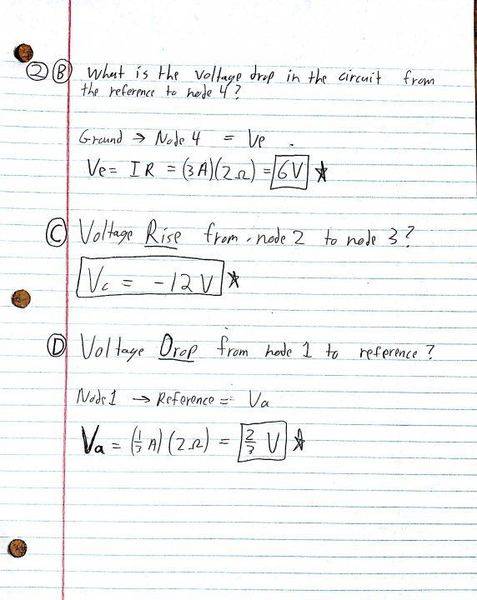 ② Ⓑ What is the voltage drop in the circuit from
the reference to node 4?
Ground → Node 4 = Ve
Ve = IR = (3A)(2Ω) = 6V
Ⓒ Voltage Rise from node 2 to node 3?
Vc = -12V
Ⓓ Voltage Drop from node 1 to reference?
Node 1 → Reference = Va
Va = (1/3 A)(2Ω) = 2/3 V